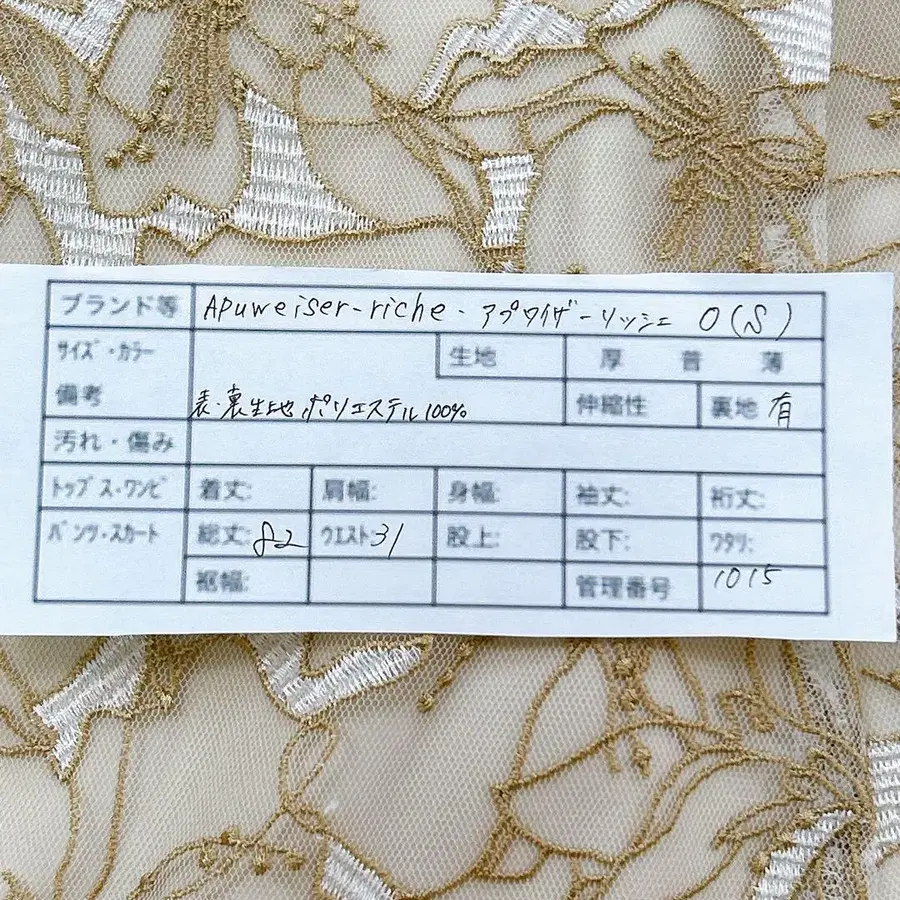 ブランド等 Apuweiser-riche・アプワイザーリッシェ 0(S)
サイズ・カラー 生地 厚 普 薄
備考 表・裏生地 ポリエステル100% 伸縮性 裏地 有
汚れ・傷み
トップス・ワンピ 着丈: 肩幅: 身幅: 袖丈: 裄丈:
パンツ・スカート 総丈: 82 ウエスト: 31 股上: 股下: ワタリ:
裾幅: 管理番号 1015